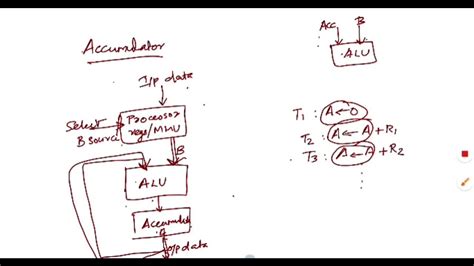 Accumulator
I/p data
Select
B Source
Processor
regs/MMU
B
ALU
Accumulat
O/p data
Acc
B
ALU
T1 : A ← 0
T2 : A ← A + R1
T3 : A ← A + R2